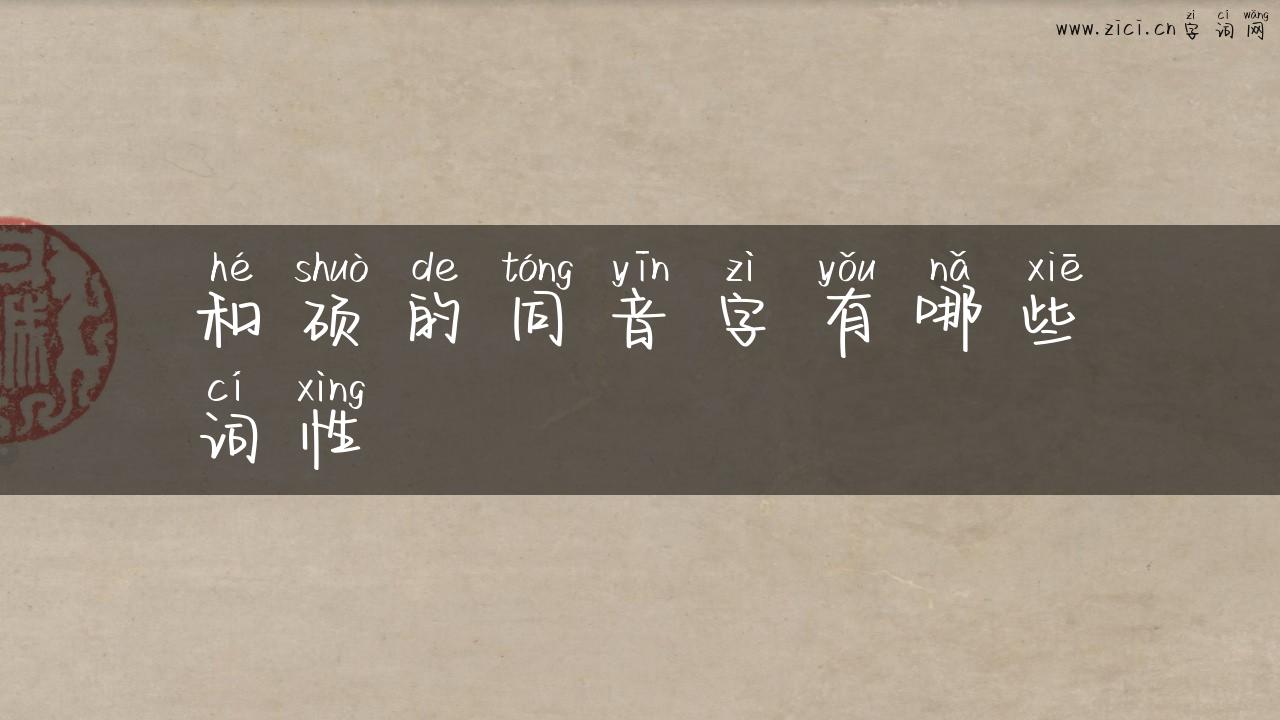 zì cí wǎng
www.zici.cn 字词网
hé shuò de tóng yīn zì yǒu nǎ xiē
和硕的同音字有哪些
cí xìng
词性